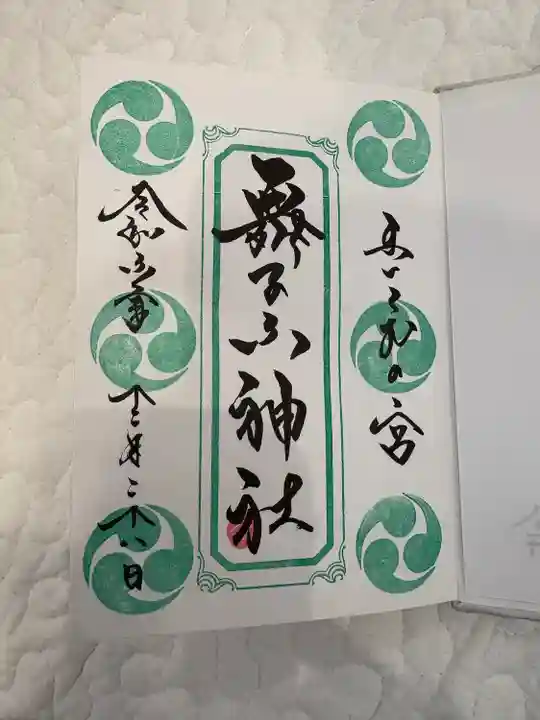 まいこむの宮
舞子六神社
令和六年 十二月二十八日